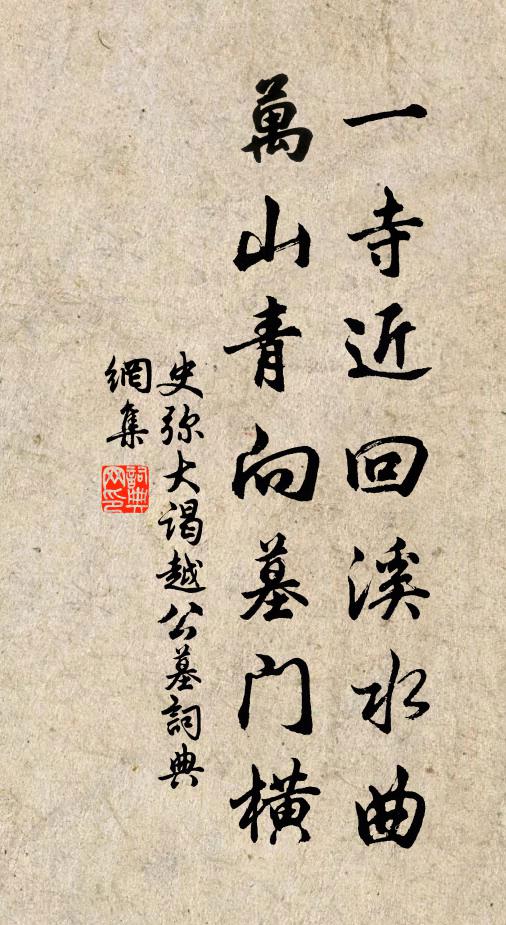 一寺近回溪水曲
萬山青向墓门横
史弥大谒越公墓詞典
網集
詞典
网印